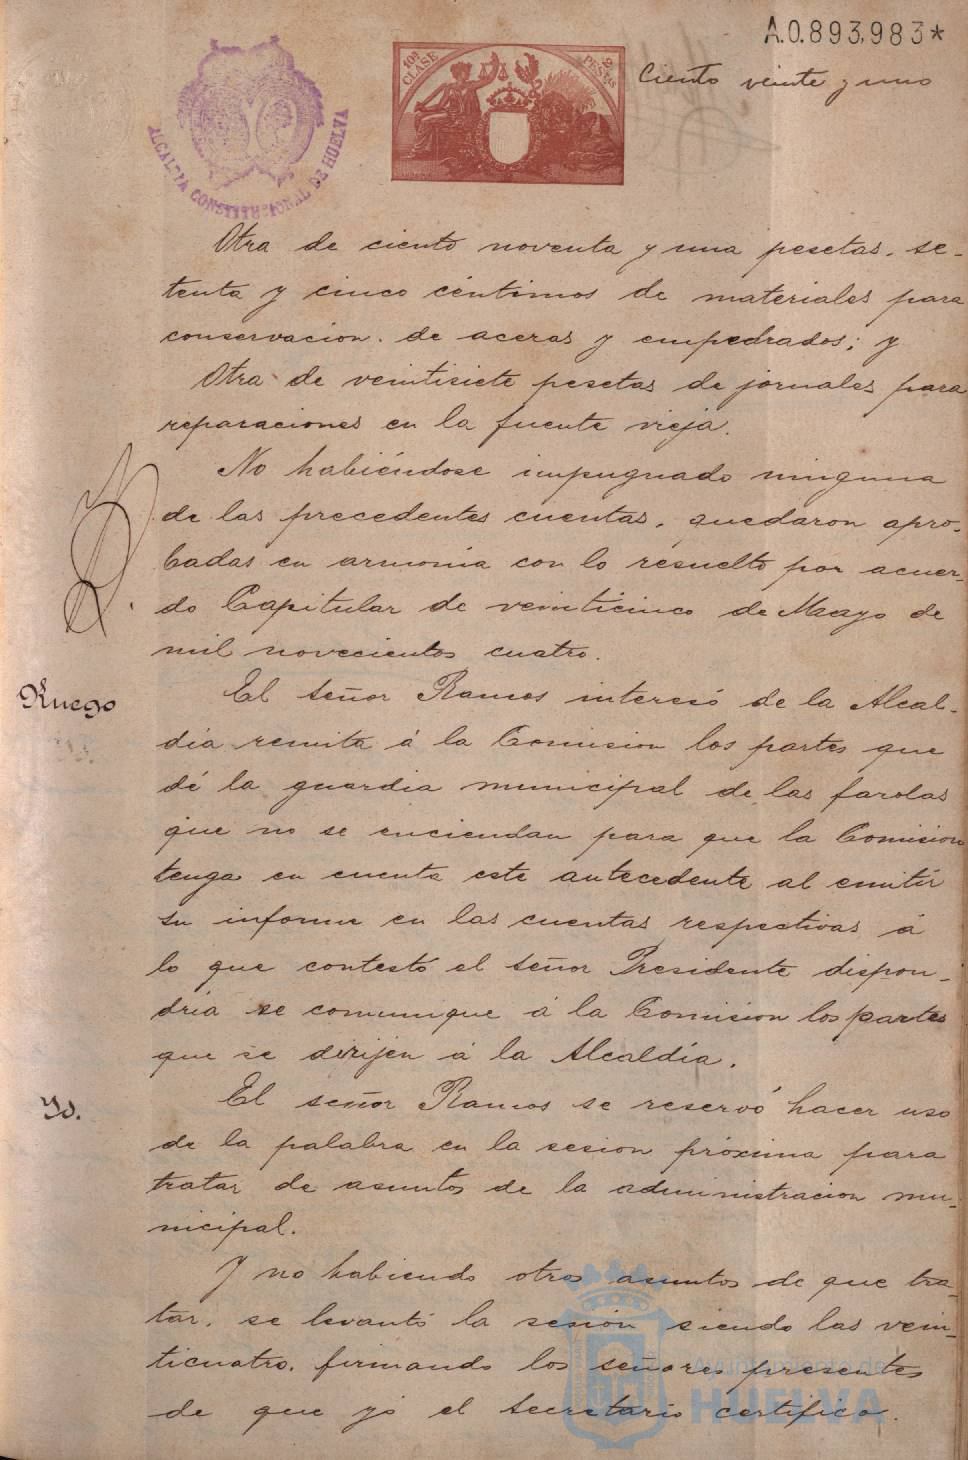 A.0.893,983*
Ciento veinte y uno
10ª CLASE
2 PESETAS
ALCALDIA CONSTITUCIONAL DE HUELVA
Otra de ciento noventa y una pesetas, se-
tenta y cinco céntimos de materiales para
conservacion de aceras y empedrados; y
Otra de veintisiete pesetas de jornales para
reparaciones en la fuente vieja.
No habiéndose impugnado ninguna
de las precedentes cuentas, quedaron apro-
badas en armonia con lo resuelto por acuer-
do Capitular de veinticinco de Mayo de
mil novecientos cuatro.
Ruego
El señor Ramos interesó de la Alcal-
día remita á la Comision los partes que
dé la guardia municipal de las farolas
que no se enciendan para que la Comision
tenga en cuenta este antecedente al emitir
su informe en las cuentas respectivas á
lo que contestó el señor Presidente dispon-
dría se comunique á la Comision los partes
que se dirijen á la Alcaldía.
Yd.
El señor Ramos se reservó hacer uso
de la palabra en la sesion próxima para
tratar de asuntos de la administracion mu-
nicipal.
Y no habiendo otros asuntos de que tra-
tar, se levantó la sesión siendo las vein-
ticuatro, firmando los señores presentes
de que yo el secretario certifico.
HUELVA